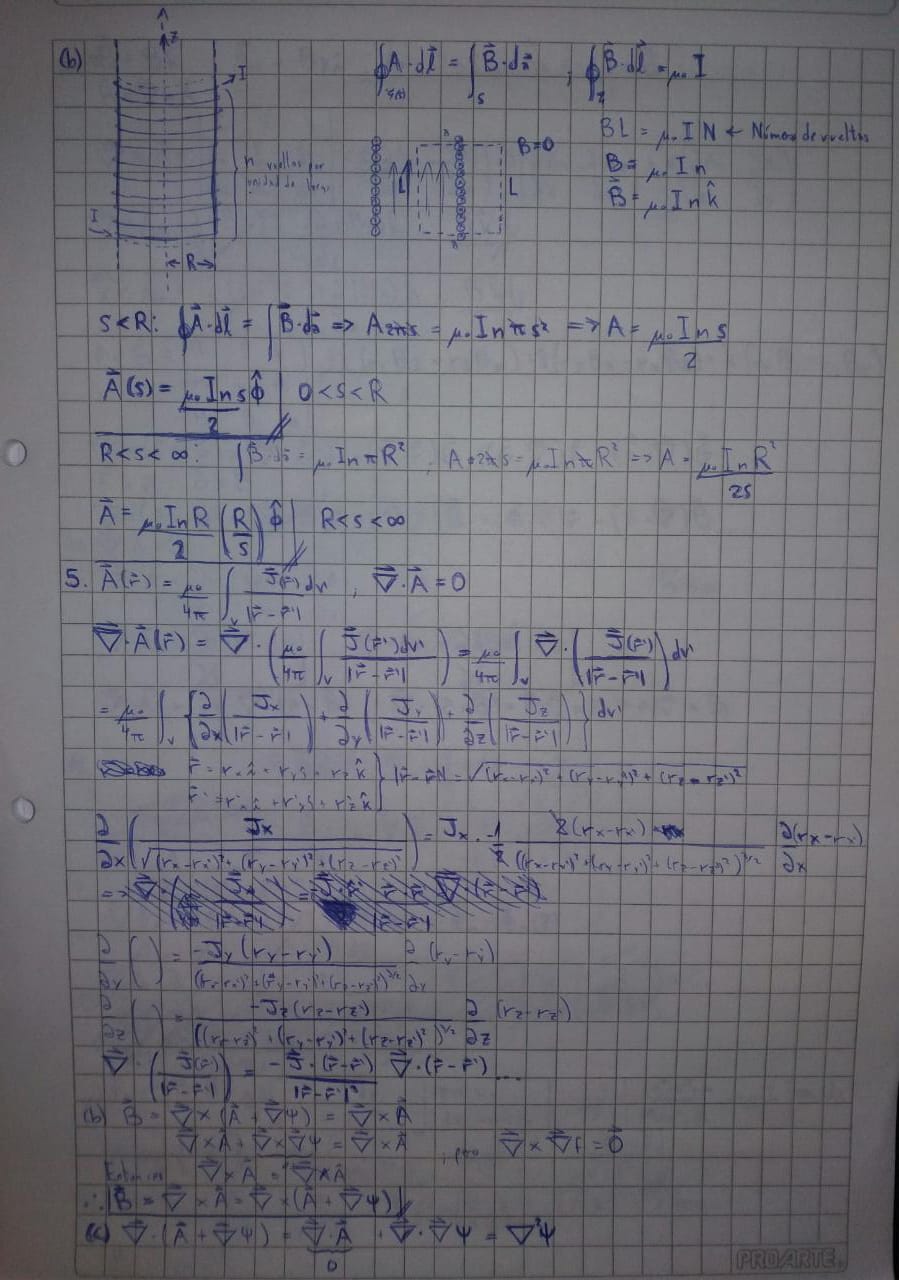 (b)
z
I
n vueltas por
unidad de largo
I
R
∮A⃗·dl⃗ = ∫_S B⃗·da⃗ , ∮B⃗·dl⃗ = μ₀I
B=0
L
L
BL = μ₀IN ← Número de vueltas
B = μ₀In
B⃗ = μ₀In k̂
s<R: ∮A⃗·dl⃗ = ∫B⃗·da⃗ => A2πs = μ₀Inπs² => A = μ₀Ins/2
A⃗(s) = μ₀Ins/2 φ̂ | 0<s<R
R<s<∞: ∫B⃗·da⃗ = μ₀InπR² , A·2πs = μ₀InπR² => A = μ₀InR²/2s
A⃗ = μ₀InR/2 (R/s) φ̂ | R<s<∞
5. A⃗(r⃗) = μ₀/4π ∫_V J⃗(r⃗')dv'/|r⃗-r⃗'| , ∇⃗·A⃗ = 0
∇⃗·A⃗(r⃗) = ∇⃗·(μ₀/4π ∫_V J⃗(r⃗')dv'/|r⃗-r⃗'|) = μ₀/4π ∫_V ∇⃗·(J⃗(r⃗')/|r⃗-r⃗'|)dv'
= μ₀/4π ∫_V {∂/∂x(Jx/|r⃗-r⃗'|) + ∂/∂y(Jy/|r⃗-r⃗'|) + ∂/∂z(Jz/|r⃗-r⃗'|)}dv'
r⃗ = rxî + ryĵ + rzk̂ } |r⃗-r⃗'| = √((rx-rx')² + (ry-ry')² + (rz-rz')²)
r⃗' = rx'î + ry'ĵ + rz'k̂
∂/∂x(Jx/√((rx-rx')²+(ry-ry')²+(rz-rz')²)) = Jx·-1/2 2(rx-rx')/((rx-rx')²+(ry-ry')²+(rz-rz')²)^3/2 ∂(rx-rx')/∂x
∂/∂y( ) = -Jy(ry-ry')/((rx-rx')²+(ry-ry')²+(rz-rz')²)^3/2 ∂/∂y (ry-ry')
∂/∂z( ) = -Jz(rz-rz')/((rx-rx')²+(ry-ry')²+(rz-rz')²)^3/2 ∂/∂z (rz-rz')
∇⃗·(J⃗(r⃗')/|r⃗-r⃗'|) = -J⃗·(r⃗-r⃗')/|r⃗-r⃗'|³ ∇⃗·(r⃗-r⃗') ...
(b) B⃗ = ∇⃗×(A⃗+∇⃗Ψ) = ∇⃗×A⃗
∇⃗×A⃗ + ∇⃗×∇⃗Ψ = ∇⃗×A⃗ , pero ∇⃗×∇⃗f = 0⃗
Entonces ∇⃗×A⃗ = ∇⃗×A⃗
∴ B⃗ = ∇⃗×A⃗ = ∇⃗×(A⃗+∇⃗Ψ)
(c) ∇⃗·(A⃗+∇⃗Ψ) = ∇⃗·A⃗ + ∇⃗·∇⃗Ψ = ∇²Ψ
0
PROARTE